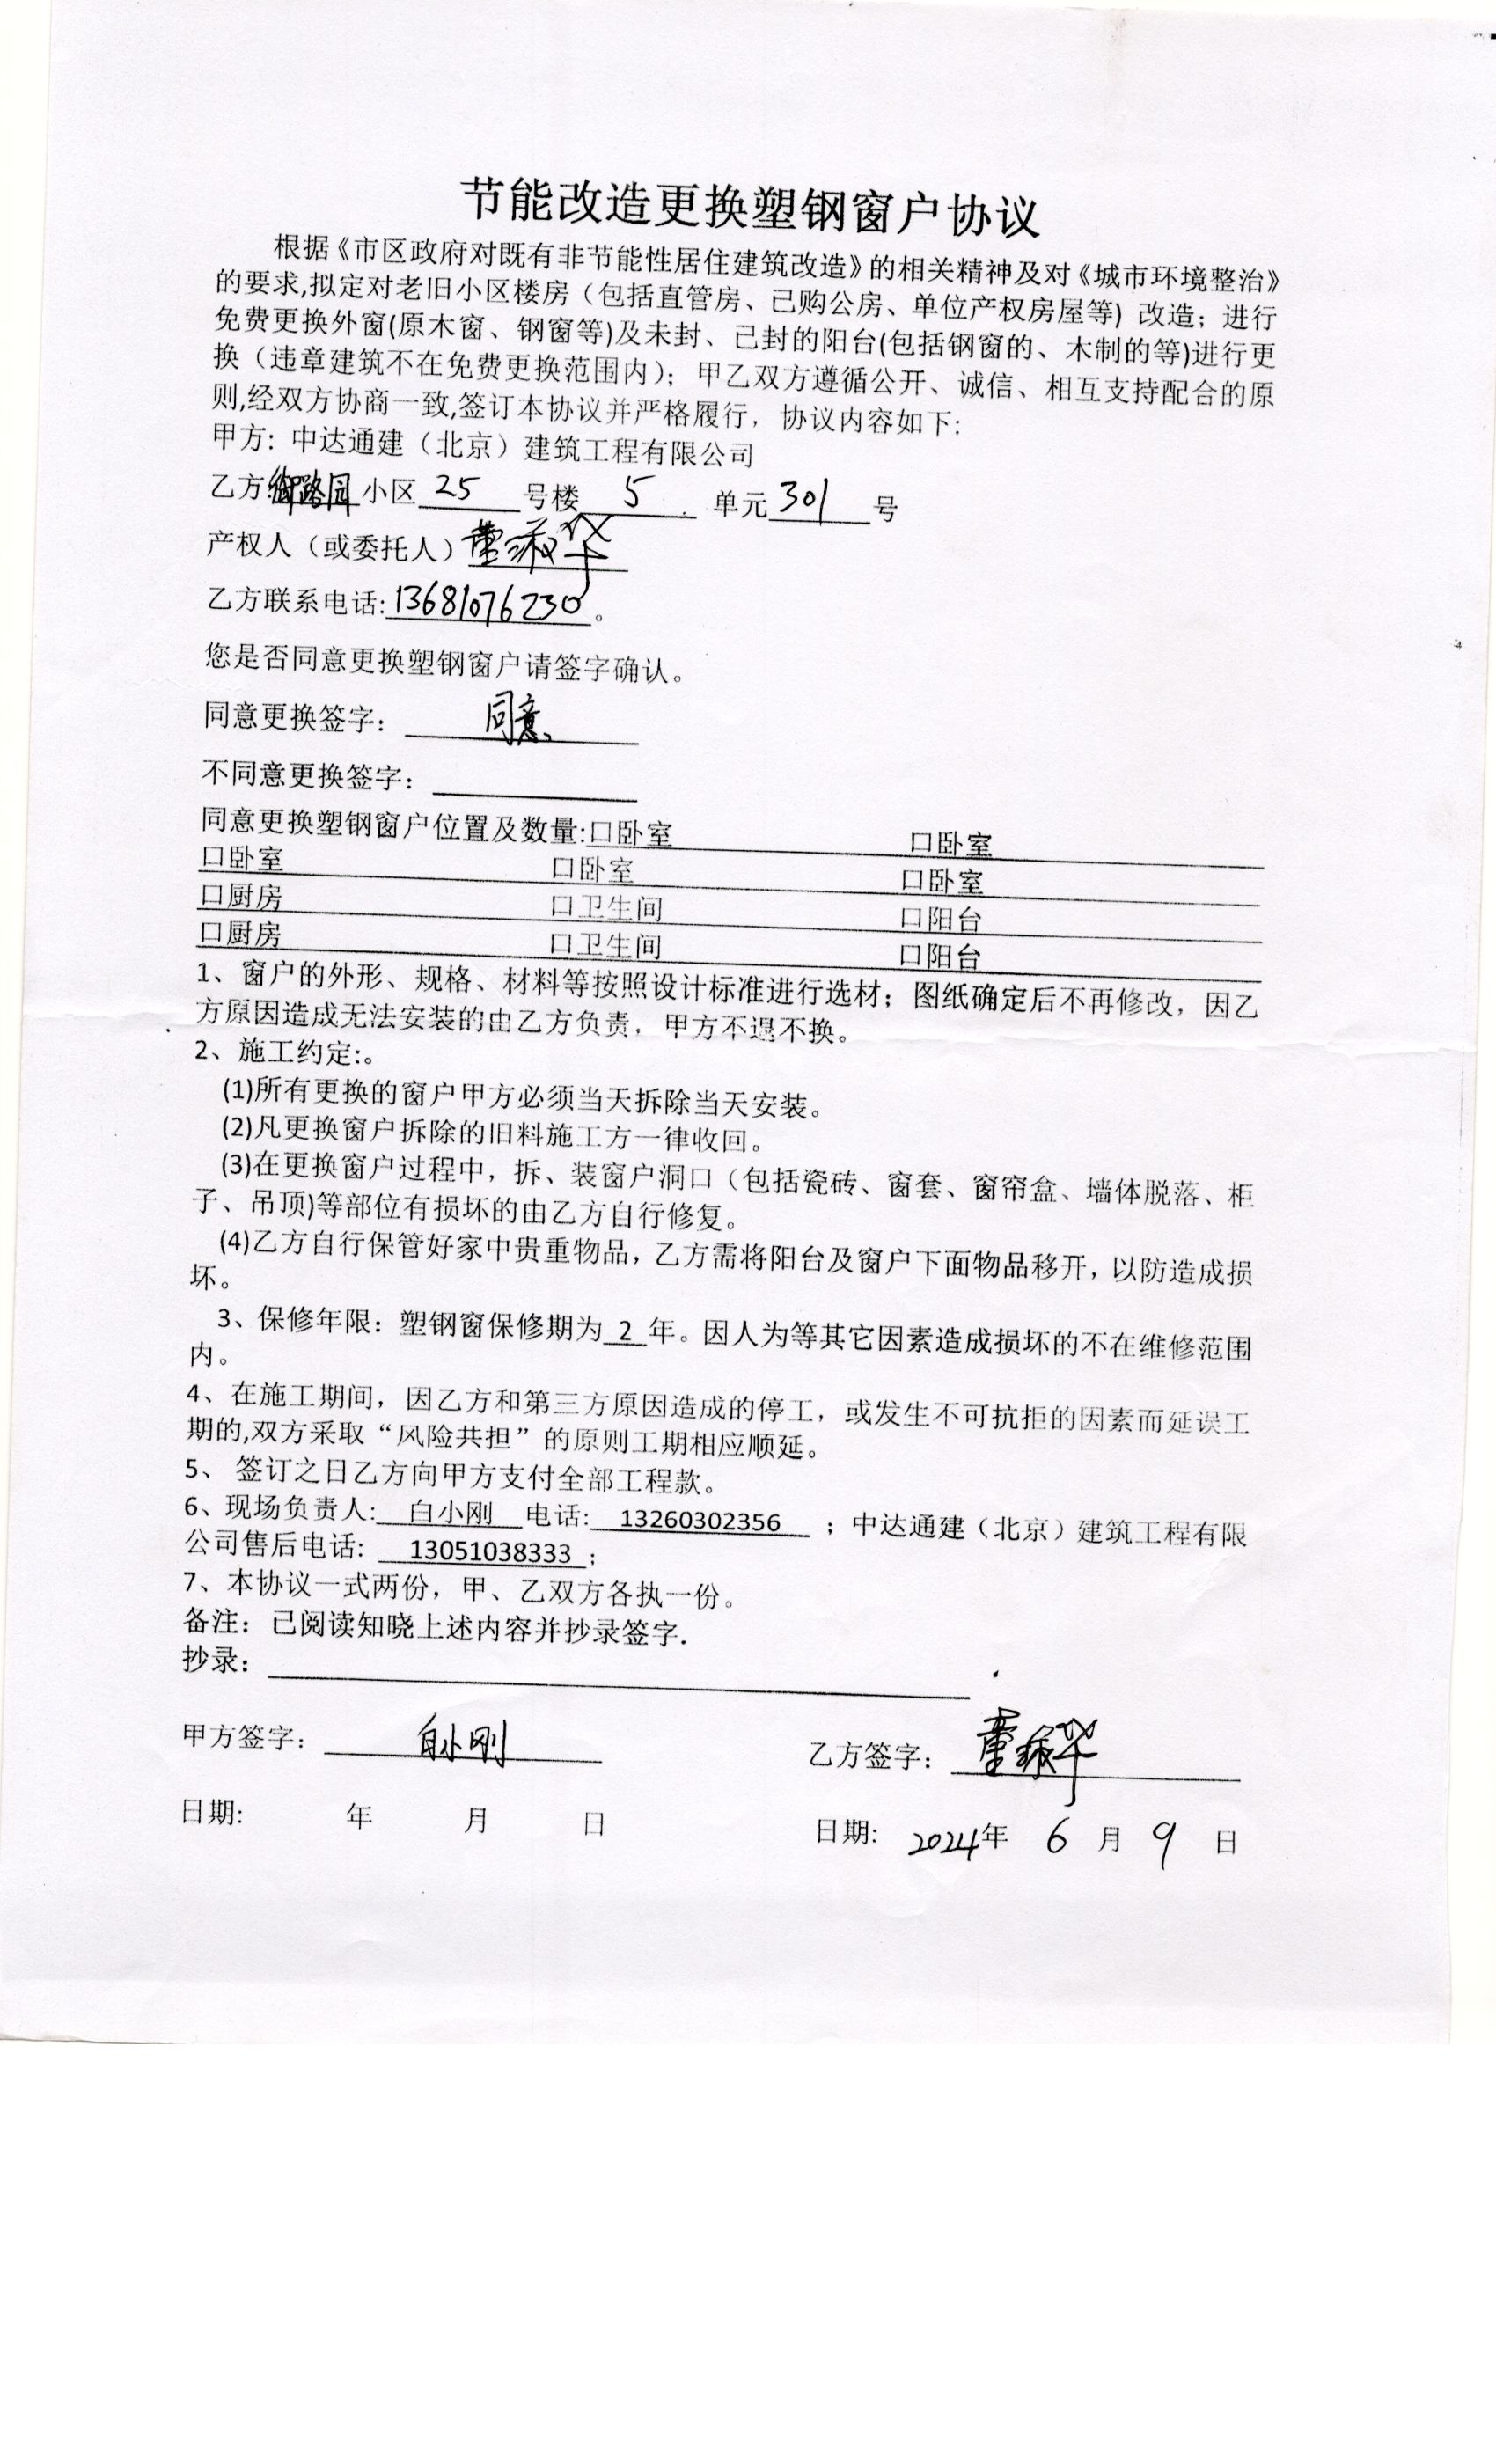 节能改造更换塑钢窗户协议
根据《市区政府对既有非节能性居住建筑改造》的相关精神及对《城市环境整治》
的要求,拟定对老旧小区楼房（包括直管房、已购公房、单位产权房屋等）改造；进行
免费更换外窗(原木窗、钢窗等)及未封、已封的阳台(包括钢窗的、木制的等)进行更
换（违章建筑不在免费更换范围内）；甲乙双方遵循公开、诚信、相互支持配合的原
则,经双方协商一致,签订本协议并严格履行，协议内容如下：
甲方: 中达通建（北京）建筑工程有限公司
乙方:御路园小区 25 号楼 5 单元 301 号
产权人（或委托人）董淑华
乙方联系电话:13681076230。
您是否同意更换塑钢窗户请签字确认。
同意更换签字： 同意
不同意更换签字：
同意更换塑钢窗户位置及数量:口卧室 口卧室
口卧室 口卧室 口卧室
口厨房 口卫生间 口阳台
口厨房 口卫生间 口阳台
1、窗户的外形、规格、材料等按照设计标准进行选材；图纸确定后不再修改，因乙
方原因造成无法安装的由乙方负责，甲方不退不换。
2、施工约定:。
(1)所有更换的窗户甲方必须当天拆除当天安装。
(2)凡更换窗户拆除的旧料施工方一律收回。
(3)在更换窗户过程中，拆、装窗户洞口（包括瓷砖、窗套、窗帘盒、墙体脱落、柜
子、吊顶)等部位有损坏的由乙方自行修复。
(4)乙方自行保管好家中贵重物品，乙方需将阳台及窗户下面物品移开，以防造成损
坏。
3、保修年限：塑钢窗保修期为 2 年。因人为等其它因素造成损坏的不在维修范围
内。
4、在施工期间，因乙方和第三方原因造成的停工，或发生不可抗拒的因素而延误工
期的,双方采取“风险共担”的原则工期相应顺延。
5、 签订之日乙方向甲方支付全部工程款。
6、现场负责人: 白小刚 电话: 13260302356 ；中达通建（北京）建筑工程有限
公司售后电话: 13051038333 ;
7、本协议一式两份，甲、乙双方各执一份。
备注：已阅读知晓上述内容并抄录签字.
抄录：
甲方签字： 白小刚 乙方签字： 董淑华
日期: 年 月 日 日期: 2024年 6 月 9 日